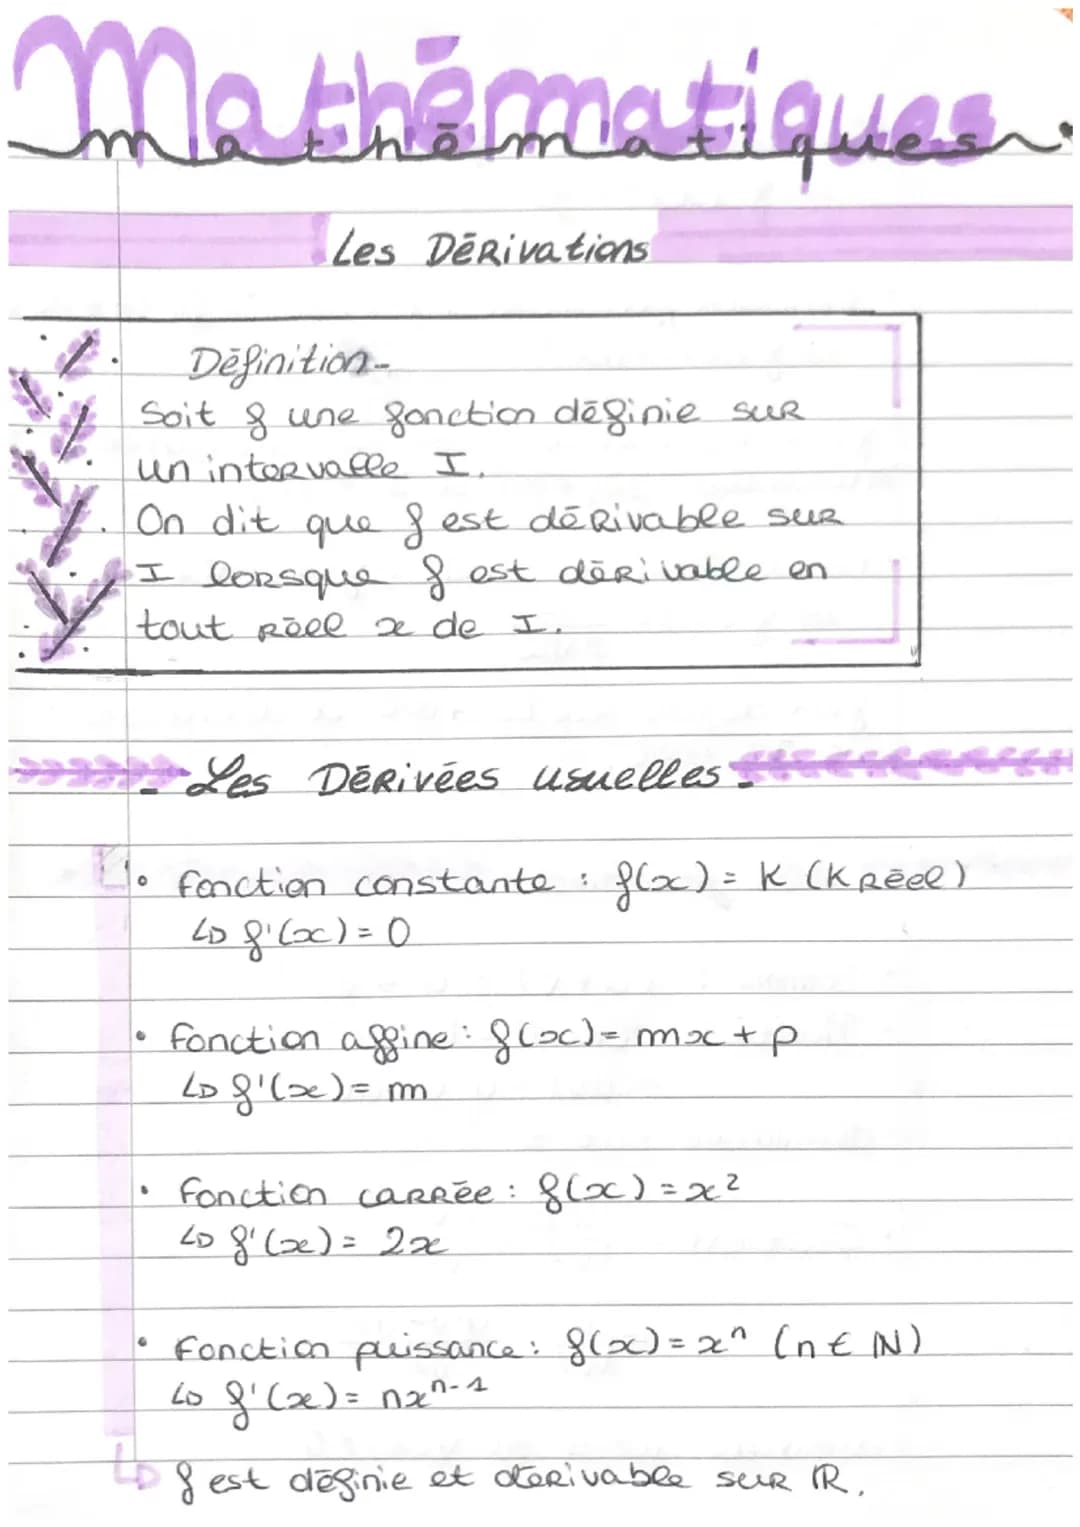 Mathématiques
mathématiques
Les Dérivations
Définition
Soit f une fonction définie sur
un intervalle I.
On dit que f est dérivable sur
I lorsque f est dérivable en
tout réel x de I.
- Les Dérivées usuelles -
• fonction constante : f(x) = K (K réel)
↳ f'(x) = 0
• fonction affine : f(x) = mx + p
↳ f'(x) = m
• fonction carrée : f(x) = x²
↳ f'(x) = 2x
• fonction puissance : f(x) = xⁿ (n ∈ ℕ)
↳ f'(x) = nxⁿ⁻¹
↳ f est définie et dérivable sur ℝ.